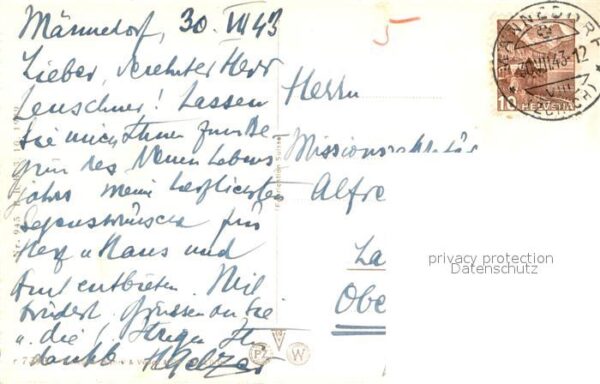 Männedorf, 30. VII 43
Lieber, verehrter Herr
Leuschner! Lassen
Sie mich Ihnen zum Be-
ginn des Neuen Lebens
jahrs meine herzlichsten
Segenswünsche für
Herz u Haus und
Amt entbieten. Mit
Grüssen an Sie
u. die l. Ihrigen Ihr
dankb.
5
Herrn
Missionssekretär
Alfre
La
Obe
MÄNNEDORF
30.VII.43-12
(ZÜRICH)
10 HELVETIA
privacy protection
Datenschutz
Nr. 945
W